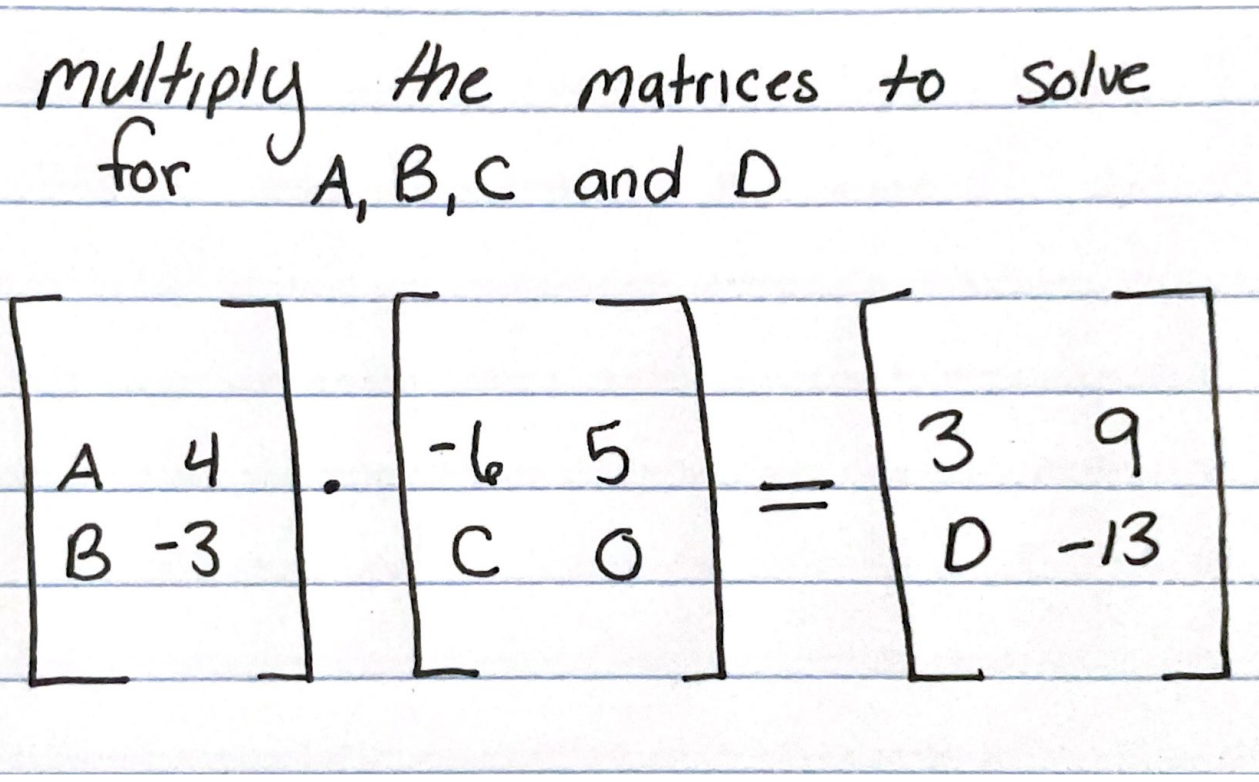 multiply the matrices to solve
for A, B, C and D
A 4 . -6 5 = 3 9
B -3 C 0 D -13